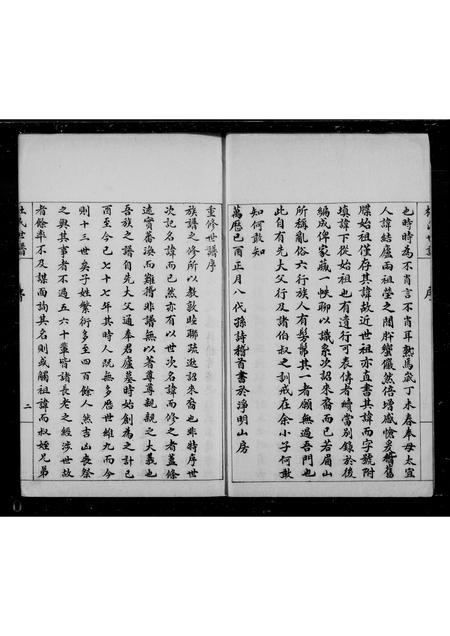 也時時為不肖言不肖耳熱焉歲丁未春奉母太宜
人諱結廬兩祖塋之間肝蠁儼然倍增感愴爰稽舊
牒始祖僅存其諱故近世祖亦直書其諱而字號附
填諱下從始祖也有遺行可表傳者續當別錄於後
編成俾家藏一帙聊以識系次詔來裔而已若眉山
所稱亂俗六行族人有髣髴其一者願無過吾門也
此自有先大父行及諸伯叔之訓戒在余小子何敢
知何敢知
萬曆己酉正月八代孫詩稽首書於淨明山房
重修世譜序
族譜之修所以教敦睦聯疏逖詔來裔也與時序世
次記名諱而已然亦有以世次名諱而修之者蓋條
遠實蕃渙而難稽非譜無以著尊尊親親之大義也
吾族之譜自先大父通奉君廬墓時始創為之計己
酉至今己七十七年其時人阮無多歷世維九而今
則十三世矣子姓繁衍多至四百餘人然吉凶喪祭
之與其事者不過五六十輩皆諸長老之經涉世故
者餘率不及謀而詢其名則或觸祖諱而叔姪兄弟
杜氏世譜
序
二